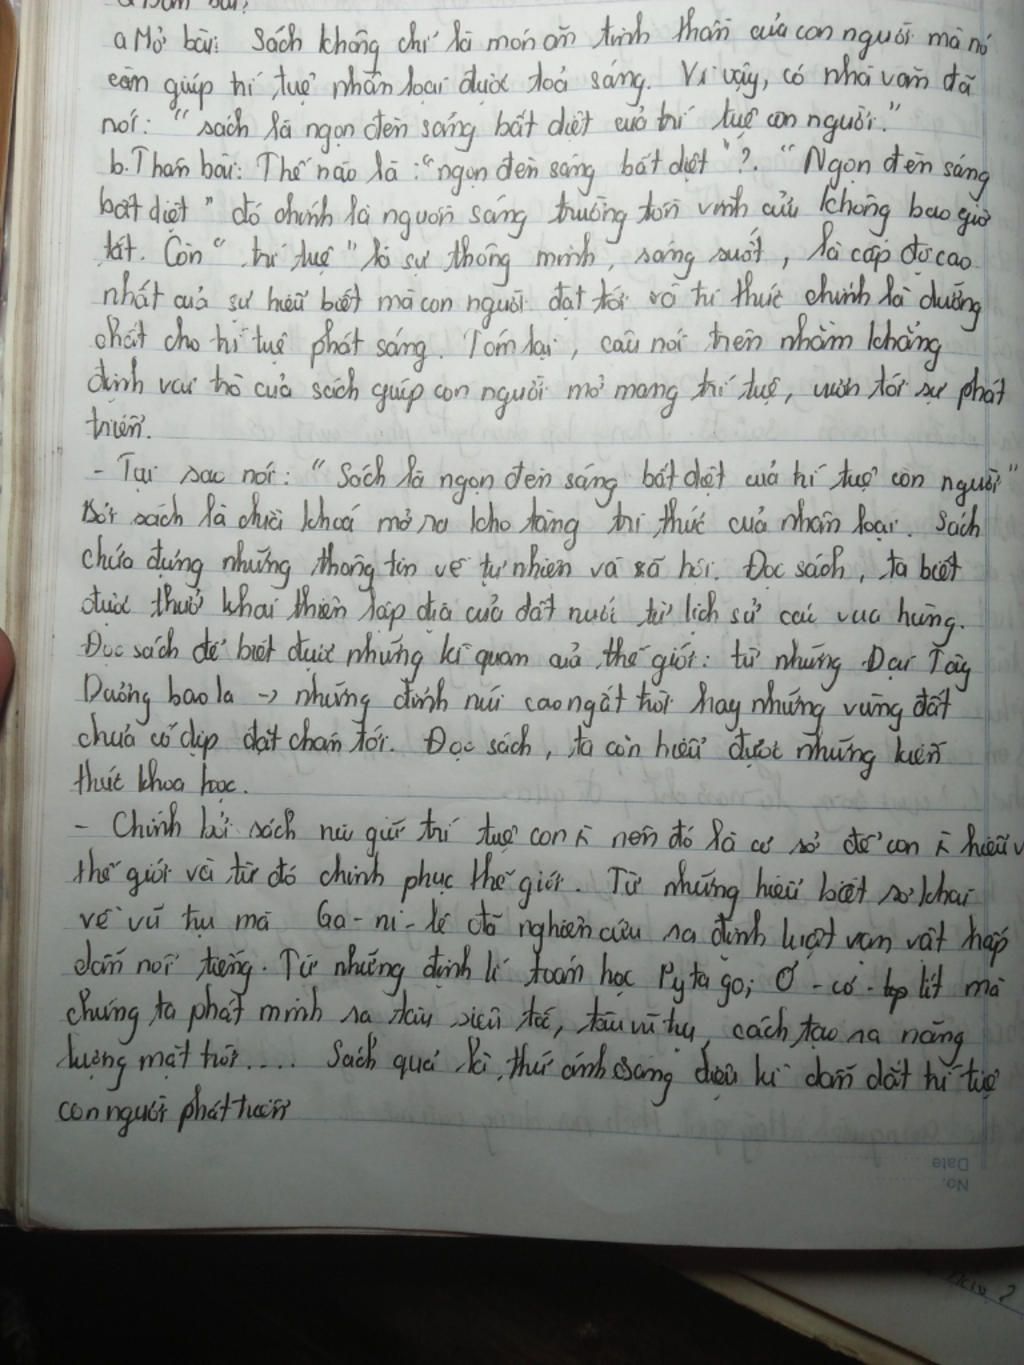 Dàn bài:
a Mở bài: Sách không chỉ là món ăn tinh thần của con người mà nó
còn giúp trí tuệ nhân loại được toả sáng. Vì vậy, có nhà văn đã
nói: "sách là ngọn đèn sáng bất diệt của trí tuệ con người."
b. Thân bài: Thế nào là: "ngọn đèn sáng bất diệt"?. "Ngọn đèn sáng
bất diệt" đó chính là nguồn sáng trường tồn vĩnh cửu không bao giờ
tắt. Còn "trí tuệ" là sự thông minh, sáng suốt, là cấp độ cao
nhất của sự hiểu biết mà con người đạt tới và tri thức chính là dưỡng
chất cho trí tuệ phát sáng. Tóm lại, câu nói trên nhằm khẳng
định vai trò của sách giúp con người mở mang trí tuệ, vươn tới sự phát
triển.
- Tại sao nói: "Sách là ngọn đèn sáng bất diệt của trí tuệ con người"
Bởi sách là chìa khoá mở ra kho tàng tri thức của nhân loại. Sách
chứa đựng những thông tin về tự nhiên và xã hội. Đọc sách, ta biết
được thuở khai thiên lập địa của đất nước từ lịch sử các vua hùng.
Đọc sách để biết được những kì quan của thế giới: từ những Đại Tây
Dương bao la -> những đỉnh núi cao ngất trời hay những vùng đất
chưa có dịp đặt chân tới. Đọc sách, ta còn hiểu được những kiến
thức khoa học.
- Chính bởi sách nú giữ trí tuệ con nên đó là cơ sở để con hiểu
thế giới và từ đó chinh phục thế giới. Từ những hiểu biết sơ khai
về vũ trụ mà Ga-ni-lê đã nghiên cứu ra định luật vạn vật hấp
dẫn nổi tiếng. Từ những định lí toán học Pytago; Ơ-cơ-lit mà
chúng ta phát minh ra tàu siêu tốc, tàu vũ trụ, cách tạo ra năng
lượng mặt trời.... Sách quả là thứ ánh sáng diệu kì dẫn dắt trí tuệ
con người phát triển
No.
Date